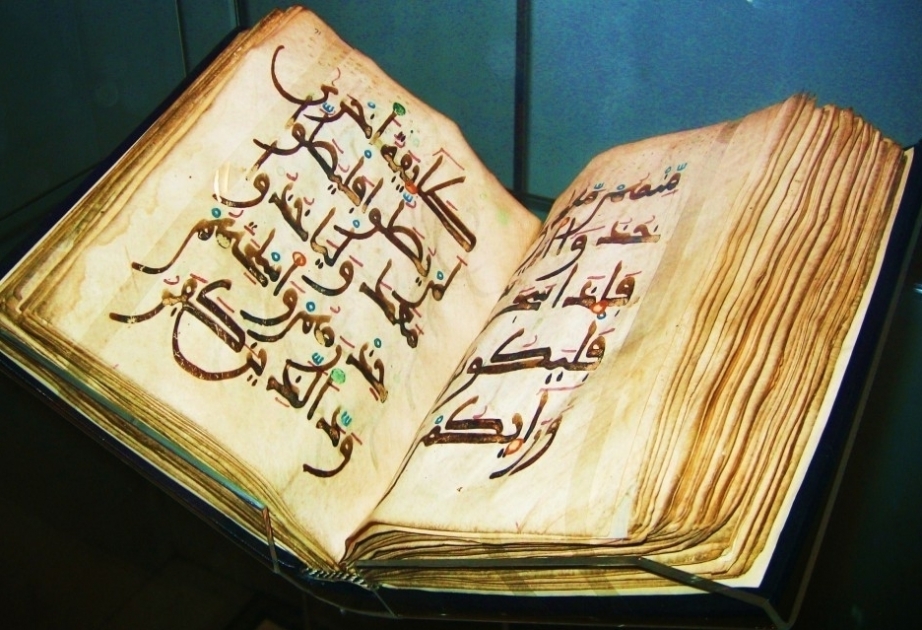 منهم مع
خذوا
فاذا سجد
فليكو
ورايكم
طايفة اخرى
لم يصلوا فليصلوا
معك ولياخذوا
حذرهم واسلحتهم
ود الذين كفرو